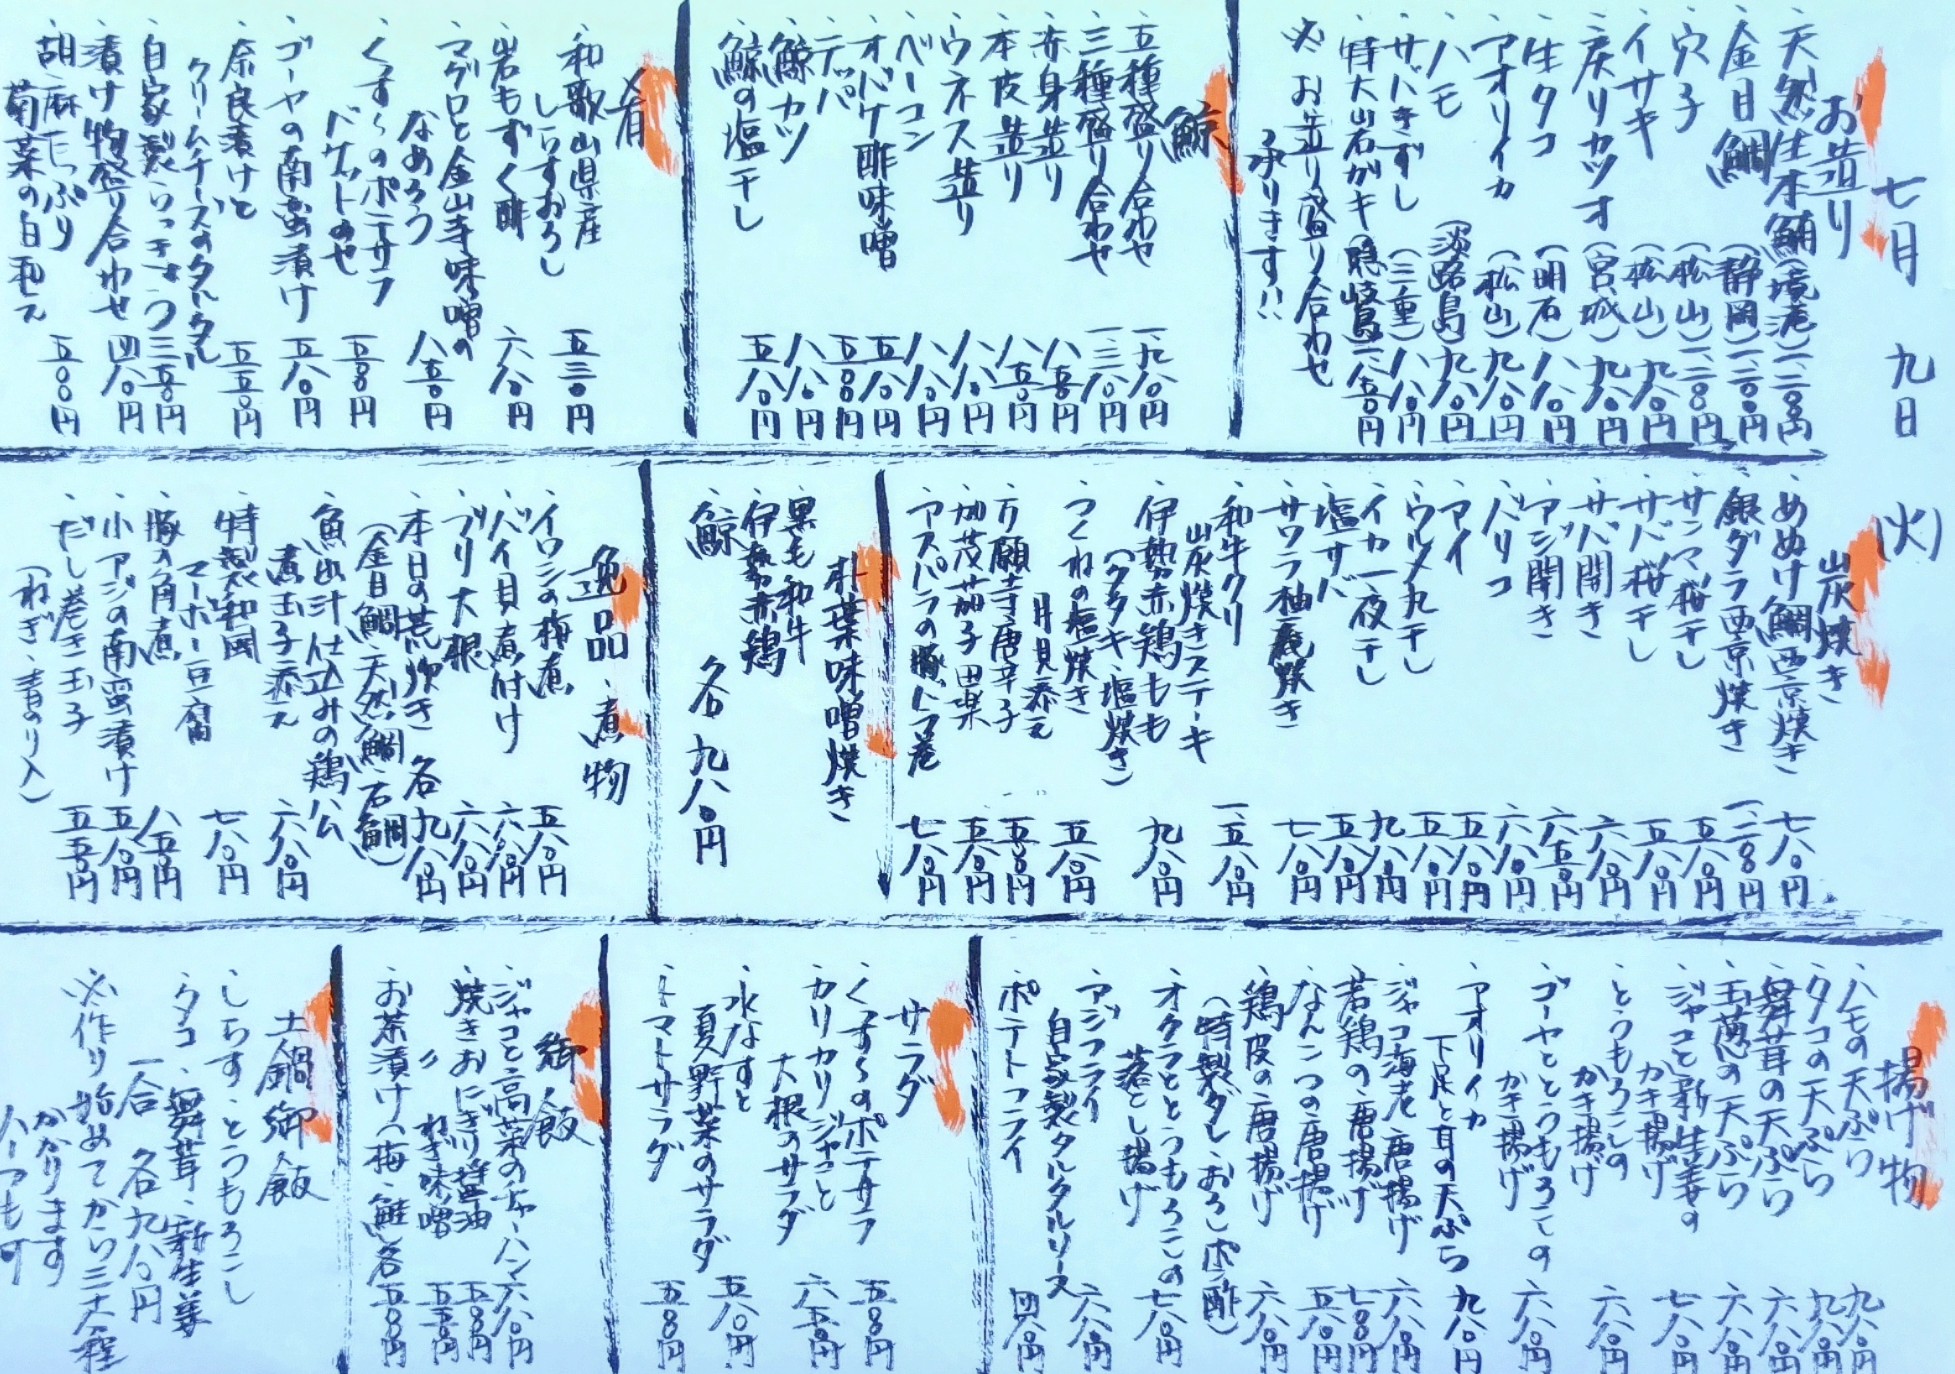 七月 九日 (火)
お造り
、天然生本鮪(境港)一、二〇〇円
、金目鯛(静岡)一、二〇〇円
、穴子(松山)一、二〇〇円
、イサキ(松山)九八〇円
、戻りカツオ(宮城)九八〇円
、生タコ(明石)八八〇円
、アオリイカ(松山)九八〇円
、ハモ(淡路島)九八〇円
、サバきずし(三重)八八〇円
、特大岩ガキ(隠岐島)一、八五〇円
※お造り盛り合わせ
承ります!!
鯨
、五種盛り合わせ 一、九八〇円
、三種盛り合わせ 一、三八〇円
、赤身造り 八五〇円
、本皮造り 八五〇円
、ウネス造り 八八〇円
、ベーコン 八八〇円
、オバケ酢味噌 五八〇円
、テッパ 五〇〇円
、鯨カツ 八八〇円
、鯨の塩干し 五八〇円
肴
、和歌山県産
しらすおろし 五三〇円
、岩もずく酢 六八〇円
、マグロと金山寺味噌の
なめろう 八五〇円
、くずし〜のポテサラ
バゲットのせ 五〇〇円
、ゴーヤの南蛮漬け 五八〇円
、奈良漬けと
クリームチーズのタルタル 五五〇円
、自家製らっきょう 三五〇円
、漬け物盛り合わせ 四八〇円
、胡麻たっぷり
菊菜の白和え 五〇〇円
炭焼き
、めぬけ鯛西京焼き 七八〇円
、銀ダラ西京焼き 一、二〇〇円
、サンマ桜干し 五八〇円
、サバ桜干し 五八〇円
、サバ開き 六八〇円
、アジ開き 六五〇円
、バリコ 六八〇円
、アイ 五八〇円
、ウルメ丸干し 五八〇円
、イカ一夜干し 九八〇円
、塩サバ 五八〇円
、サワラ柚庵焼き 七八〇円
、和牛クリ
炭焼きステーキ 一、五八〇円
、伊勢赤鶏もも
(タタキ・塩焼き) 九八〇円
、つくねの塩焼き
月見添え 五八〇円
、万願寺唐辛子 五〇〇円
、加茂茄子田楽 五八〇円
、アスパラの豚トロ巻 七八〇円
朴葉味噌焼き
、黒毛和牛
、伊勢赤鶏
、鯨 各九八〇円
逸品・煮物
、イワシの梅煮 五八〇円
、バイ貝煮付け 六八〇円
、ブリ大根 六八〇円
、本日の荒炊き 各九八〇円
(金目鯛・天然鯛・石鯛)
、魚出汁仕込みの鶏ハム
煮玉子添え 六八〇円
、特製和風
マーボー豆腐 七八〇円
、豚の角煮 八五〇円
、小アジの南蛮漬け 五八〇円
、だし巻き玉子 五五〇円
(ねぎ・青のり入)
揚げ物
、ハモの天ぷら 九八〇円
、タコの天ぷら 九八〇円
、舞茸の天ぷら 六八〇円
、玉葱の天ぷら 六八〇円
、ジャコと新生姜の
かき揚げ 七八〇円
、とうもろこしの
かき揚げ 六八〇円
、ゴーヤととうもろこしの
かき揚げ 六八〇円
、アオリイカ
下足と耳の天ぷら 九八〇円
、ジャコ海老唐揚げ 六八〇円
、若鶏の唐揚げ 七〇〇円
、なんこつの唐揚げ 五八〇円
、鶏皮の唐揚げ 六八〇円
(特製ダレ・おろしポン酢)
、オクラととうもろこしの
落とし揚げ 七八〇円
、アジフライ
自家製タルタルソース 六八〇円
、ポテトフライ 四八〇円
サラダ
、くずし〜のポテサラ 五〇〇円
、カリカリジャコと
大根のサラダ 六五〇円
、水なすと
夏野菜のサラダ 五八〇円
、トマトサラダ 五〇〇円
御飯
、ジャコと高菜のチャーハン 六八〇円
、焼きおにぎり醤油 五〇〇円
〃 ねぎ味噌 五五〇円
、お茶漬け(梅・鮭) 各五〇〇円
土鍋御飯
、しらす・とうもろこし
、タコ・舞茸・新生姜
一合 各九八〇円
※作り始めてから三十分程
かかります
ハーフも可